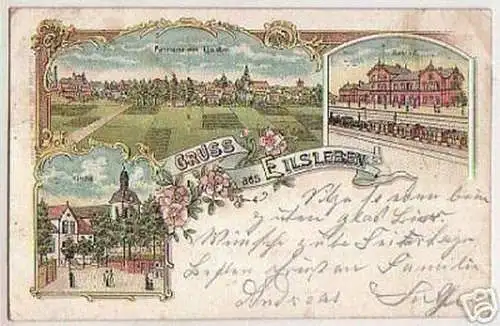 Panorama von Eilsleben
Bahnhof
Kirche
GRUSS
aus EILSLEBEN
Sitze so eben beim
guten Glas Bier
Wünsche gute Feiertage
Besten Gruss an Familie
Andreas